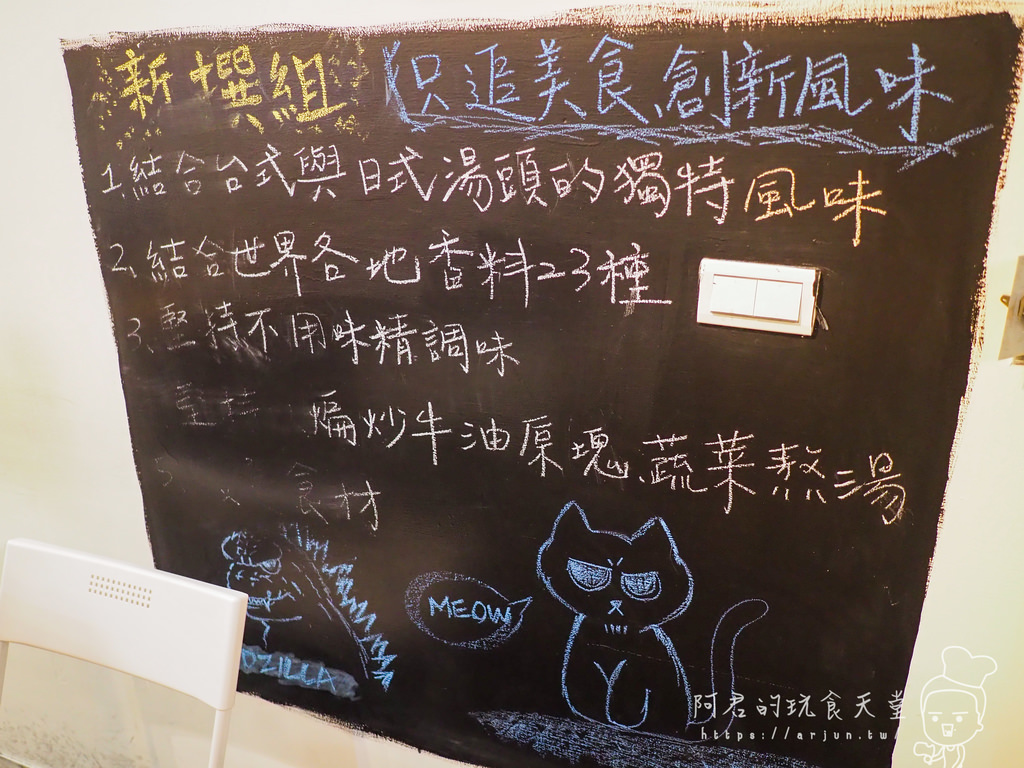 新撰組 只追美食創新風味
1.結合台式與日式湯頭的獨特風味
2.結合世界各地香料23種
3.堅持不用味精調味
煸炒牛油原塊、蔬菜熬湯
食材
MEOW
DZILLA
阿君的玩食天堂
https://arjun.tw/